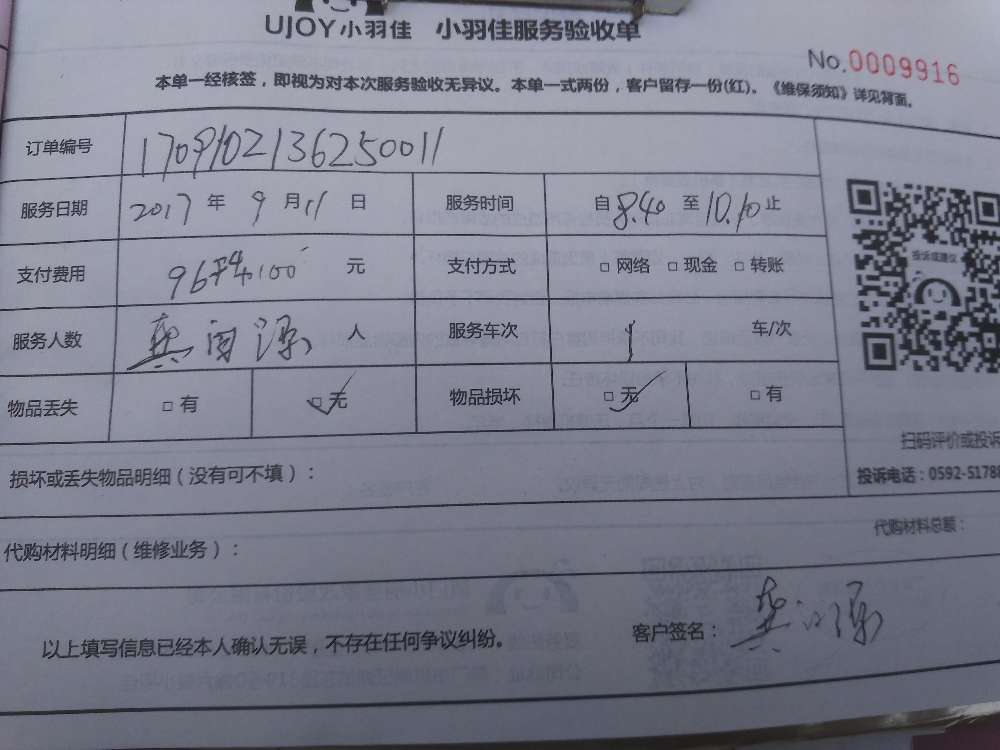 UJOY小羽佳 小羽佳服务验收单
No.0009916
本单一经核签，即视为对本次服务验收无异议。本单一式两份，客户留存一份(红)。《维保须知》详见背面。
订单编号 1709102136250011
服务日期 2017 年 9 月 11 日 服务时间 自 8.40 至 10.10 止
支付费用 元 支付方式 □ 网络 □ 现金 □ 转账
服务人数 龚闰源 人 服务车次 1 车/次
物品丢失 □ 有 □ 无 物品损坏 □ 无 □ 有
投诉或建议
扫码评价或投诉
投诉电话：0592-51788
损坏或丢失物品明细（没有可不填）：
代购材料明细（维修业务）： 代购材料总额：
以上填写信息已经本人确认无误，不存在任何争议纠纷。 客户签名：